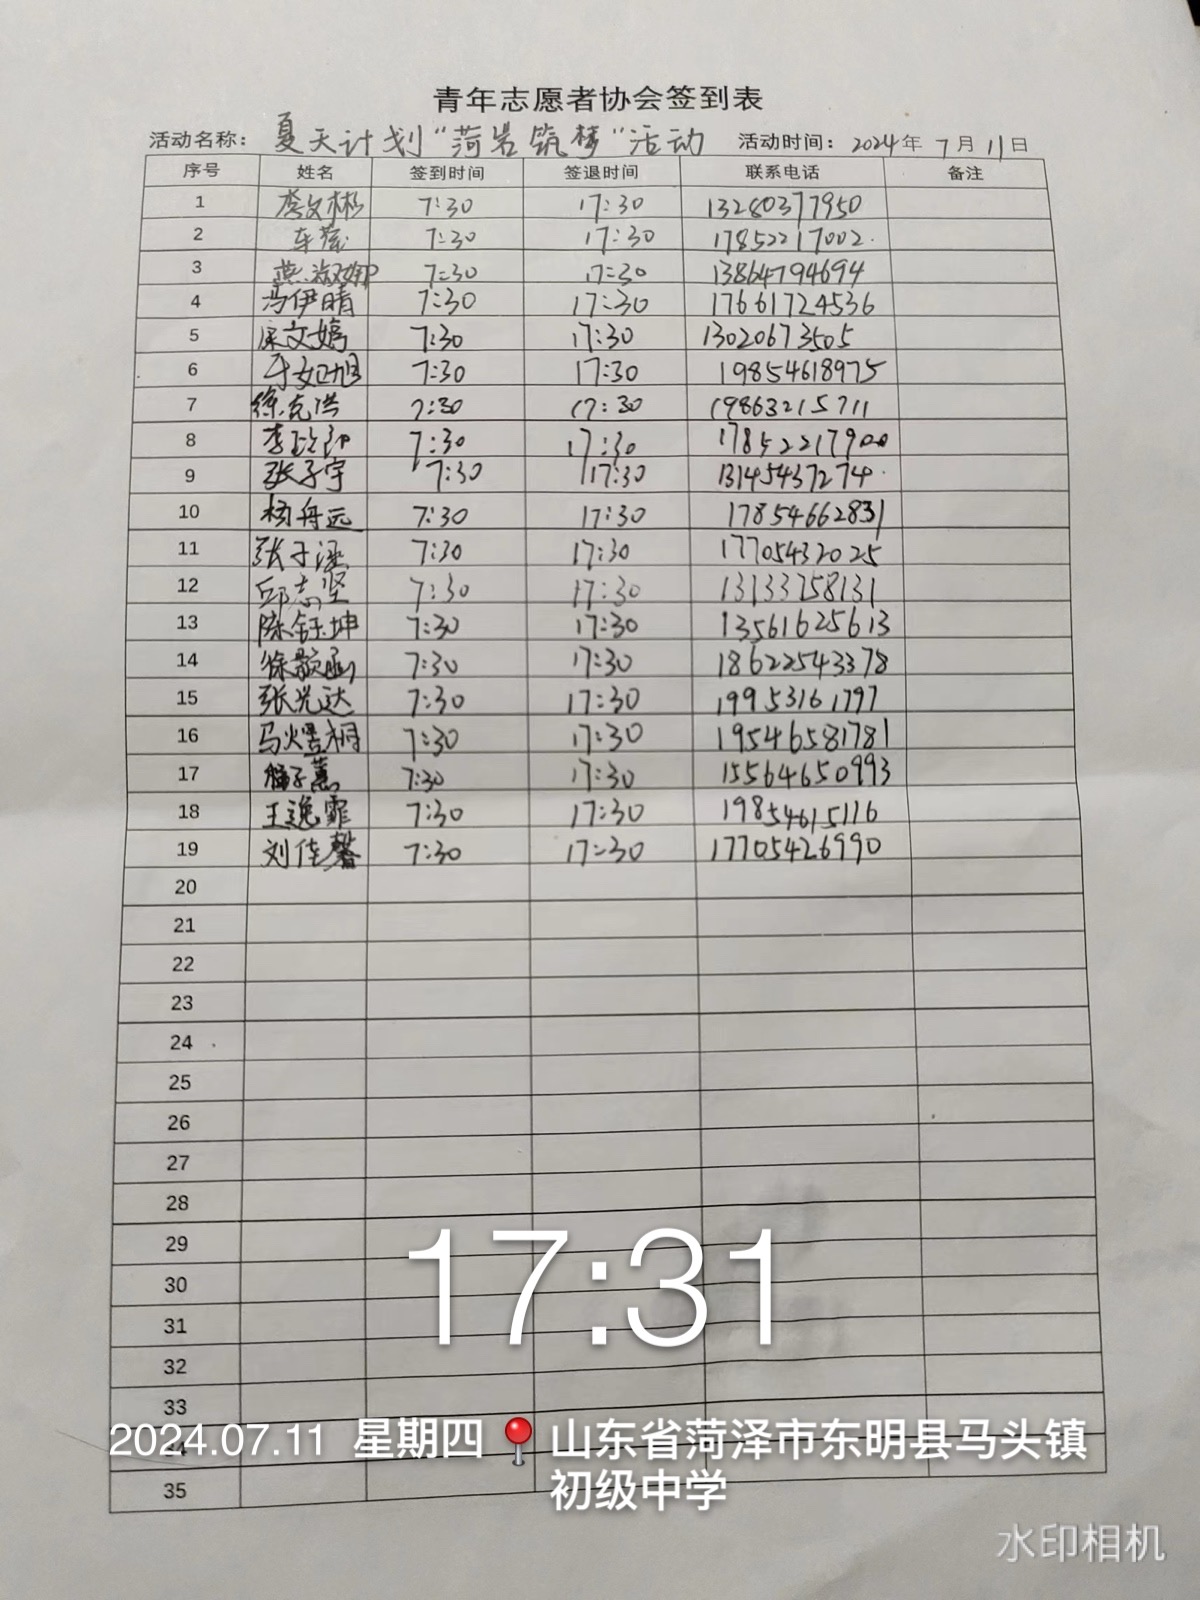 青年志愿者协会签到表
活动名称： 夏天计划“菏岩筑梦”活动 活动时间：2024年 7月 11日
序号 姓名 签到时间 签退时间 联系电话 备注
1 李文彬 7:30 17:30 13280377950
2 车莅 7:30 17:30 17852217002
3 燕淑娜 7:30 17:30 13864794694
4 冯伊晴 7:30 17:30 17661724536
5 宋文婷 7:30 17:30 13020673505
6 于如旭 7:30 17:30 19854618975
7 徐克浩 7:30 17:30 19863215711
8 7:30 17:30 17852217900
9 张子宇 7:30 17:30 13145437274
10 杨舟远 7:30 17:30 17854662831
11 张子涵 7:30 17:30 17705432025
12 邱志坚 7:30 17:30 13133258131
13 陈钰坤 7:30 17:30 13561625613
14 徐歌函 7:30 17:30 18622543378
15 张光达 7:30 17:30 19953161797
16 马煜桐 7:30 17:30 19546581781
17 7:30 17:30 15564650993
18 王逸霏 7:30 17:30 19854615116
19 刘佳馨 7:30 17:30 17705426990
20
21
22
23
24
25
26
27
28
29
30
31
32
33
34
35
17:31
2024.07.11 星期四 山东省菏泽市东明县马头镇
初级中学
水印相机